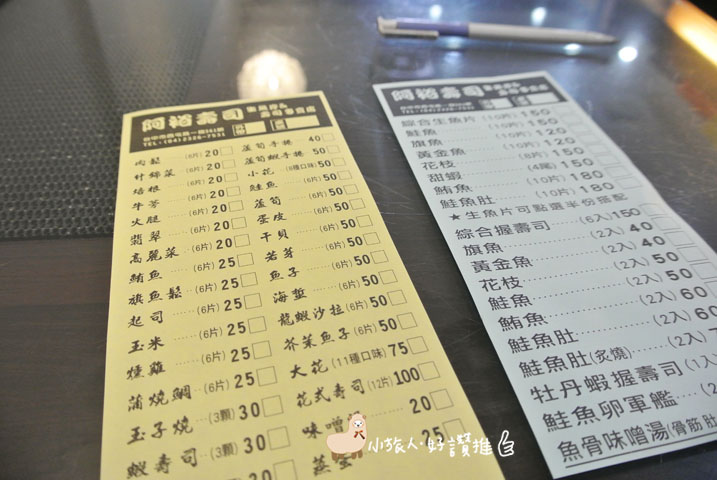 阿裕壽司
TEL:(04)2326-7531
肉鬆 (6片)20
什錦菜 (6片)20
培根 (6片)20
牛蒡 (6片)20
火腿 (6片)20
翡翠 (6片)20
高麗菜 (6片)20
鮪魚 (6片)25
旗魚鬆 (6片)25
起司 (6片)25
玉米 (6片)25
燻雞 (6片)25
蒲燒鯛 (6片)25
玉子燒 (3顆)30
蝦壽司 (3顆)30
蘆筍手捲 40
蘆筍蝦手捲 50
小花 (6種口味)50
鮭魚 (6片)50
蘆筍 (6片)50
蛋皮 (6片)50
干貝 (6片)50
若芽 (6片)50
魚子 (6片)50
海蜇 (6片)50
龍蝦沙拉 (6片)50
芥菜魚子 (6片)50
大花 (11種口味)75
花式壽司 (12片)100
味噌 20
25
阿裕壽司
綜合生魚片 (10片)150
鮭魚 (10片)120
旗魚 (10片)120
黃金魚 (10片)120
花枝 (8片)120
甜蝦 (4尾)150
鮪魚 (10片)180
鮭魚肚 (10片)180
★生魚片可點選半份搭配
綜合握壽司 (6入)150
旗魚 (2入)40
黃金魚 (2入)40
花枝 (2入)50
鮭魚 (2入)50
鮪魚 (2入)60
鮭魚肚 (2入)60
鮭魚肚(炙燒) (2入)
牡丹蝦握壽司 (1入)
鮭魚卵軍艦 (2入)
魚骨味噌湯(骨筋肚
小旅人·好讚推